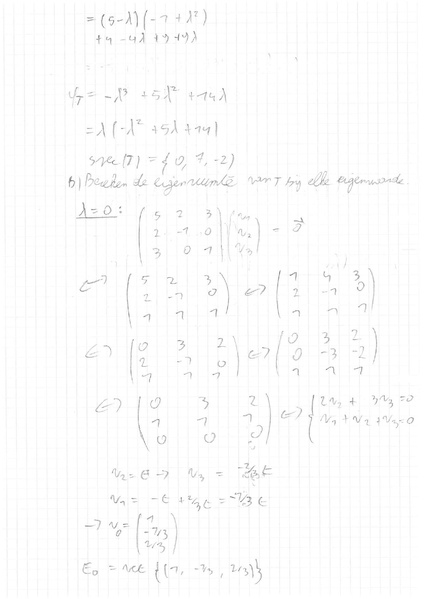 = (5-λ)(-1+λ²)
+4-4λ+9+9λ
φ_T = -λ³ + 5λ² + 14λ
= λ(-λ² + 5λ + 14)
spec(T) = {0, 7, -2}
b) Bereken de eigenruimte van T bij elke eigenwaarde.
λ=0: (5 2 3; 2 -1 0; 3 0 1) (v₁; v₂; v₃) = 0⃗
⟺ (5 2 3; 2 -1 0; 1 1 1) ⟺ (1 4 3; 2 -1 0; 1 1 1)
⟺ (0 3 2; 2 -1 0; 1 1 1) ⟺ (0 3 2; 0 -3 -2; 1 1 1)
⟺ (0 3 2; 1 1 1; 0 0 0) ⟺ { 2v₂ + 3v₃ = 0; v₁ + v₂ + v₃ = 0
v₂ = t → v₃ = -2/3 t
v₁ = -t + 2/3 t = -1/3 t
→ v₀ = (1; -1/3; 2/3)
E₀ = vct {(1, -1/3, 2/3)}